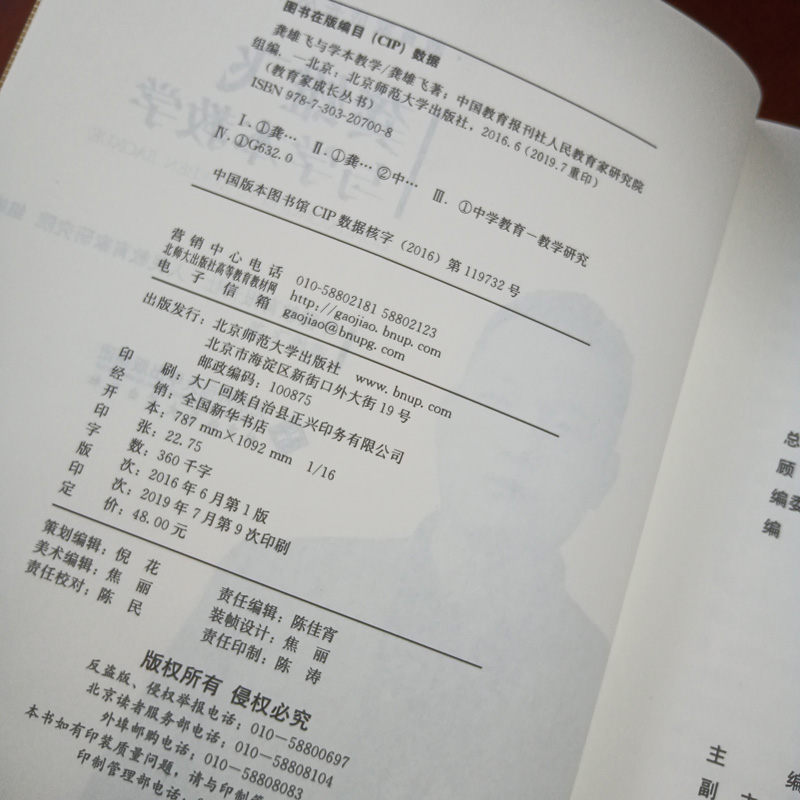 图书在版编目（CIP）数据
龚雄飞与学本教学/龚雄飞著；中国教育报刊社人民教育家研究院
组编. —北京：北京师范大学出版社，2016.6（2019.7重印）
（教育家成长丛书）
ISBN 978-7-303-20700-8
Ⅰ.①龚… Ⅱ.①龚…②中… Ⅲ.①中学教育－教学研究
Ⅳ.①G632.0
中国版本图书馆CIP数据核字（2016）第119732号
营销中心电话 010-58802181 58802123
北师大出版社高等教育教材网 http://gaojiao.bnup.com
电子信箱 gaojiao@bnupg.com
出版发行：北京师范大学出版社 www.bnup.com
北京市海淀区新街口外大街19号
邮政编码：100875
印刷：大厂回族自治县正兴印务有限公司
经销：全国新华书店
开本：787 mm×1092 mm 1/16
印张：22.75
字数：360千字
版次：2016年6月第1版
印次：2019年7月第9次印刷
定价：48.00元
策划编辑：倪花 责任编辑：陈佳宵
美术编辑：焦丽 装帧设计：焦丽
责任校对：陈民 责任印制：陈涛
版权所有 侵权必究
反盗版、侵权举报电话：010—58800697
北京读者服务部电话：010—58808104
外埠邮购电话：010—58808083
本书如有印装质量问题，请与印制管
印制管理部电话：010—58
总
顾
编委
编
主编
副主